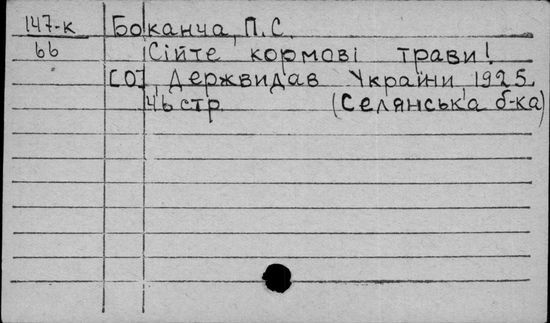 147-к Боканча, П.С.
66 Сійте кормові трави!
[О] Держвидав України, 1925
46 стр (Селянська б-ка)